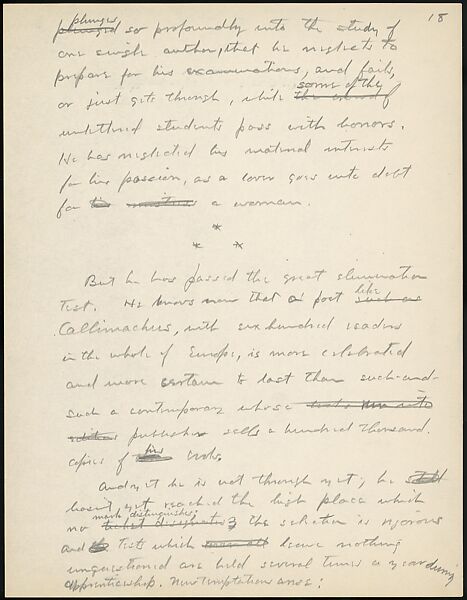 18
plunges
so profoundly into the study of
one single author, that he neglects to
prepare for his examinations, and fails,
or just gets through, while some of the
unlettered students pass with honors.
He has neglected his material interests
for his passion, as a lover goes into debt
for a woman.
*
* *
But he has passed the great elimination
Test. He knows now that a poet like
Callimachus, with six hundred readers
in the whole of Europe, is more celebrated
and more certain to last than such-and-
such a contemporary whose
publisher sells a hundred thousand
copies of his books.
And yet he is not through yet; he
hasn't yet reached the high place which
no mark distinguishes; the selection is rigorous
and Tests which leave nothing
unquestioned are held several times a year during
apprenticeship. New temptations arise: